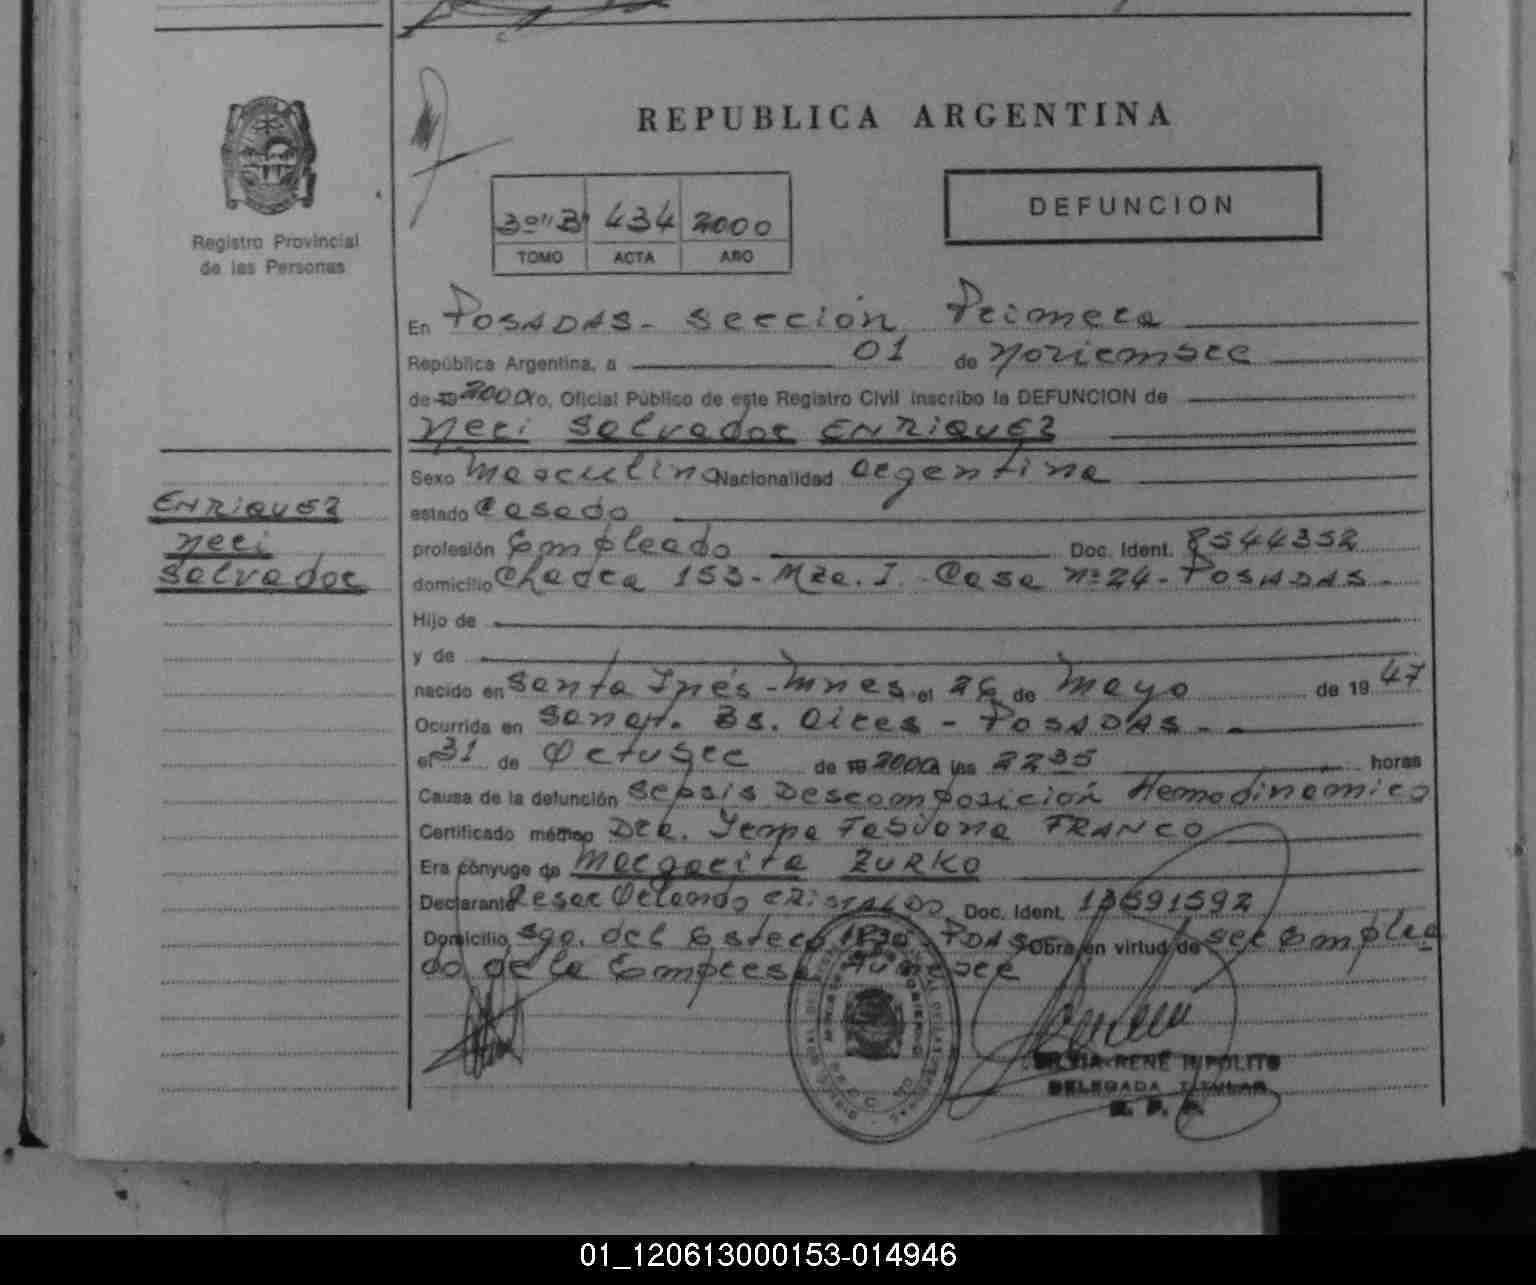 REPUBLICA ARGENTINA
Registro Provincial
de las Personas
3º "B" 434 2000
TOMO ACTA AÑO
DEFUNCION
En POSADAS - Sección Primera
República Argentina, a 01 de Noviembre
de 19 2000 Yo, Oficial Público de este Registro Civil inscribo la DEFUNCION de
Neri Salvador ENRIQUEZ
Sexo Masculino Nacionalidad Argentina
ENRIQUEZ
Neri
Salvador
estado Casado
profesión Empleado Doc. Ident. 8544352
domicilio Chacra 153 - Mza. I - Casa Nº 24 - POSADAS -
Hijo de
y de
nacido en Santa Inés - Mnes. el 26 de Mayo de 19 47
Ocurrida en Sanat. Bs. Aires - POSADAS -
el 31 de Octubre de 19 2000 a las 22 35 horas
Causa de la defunción Sepsis Descomposición Hemodinamico
Certificado médico Dra. FRANCO
Era cónyuge de Margarita ZURKO
Declarante Cesar Orlando CRISTALDO Doc. Ident. 13591592
Domicilio Sgo. del Estero 1830 - PDAS - Obra en virtud de ser Emplea
do de la Empresa
SILVIA RENE HIPOLITO
DELEGADA TITULAR
R. P. P.
01_120613000153-014946